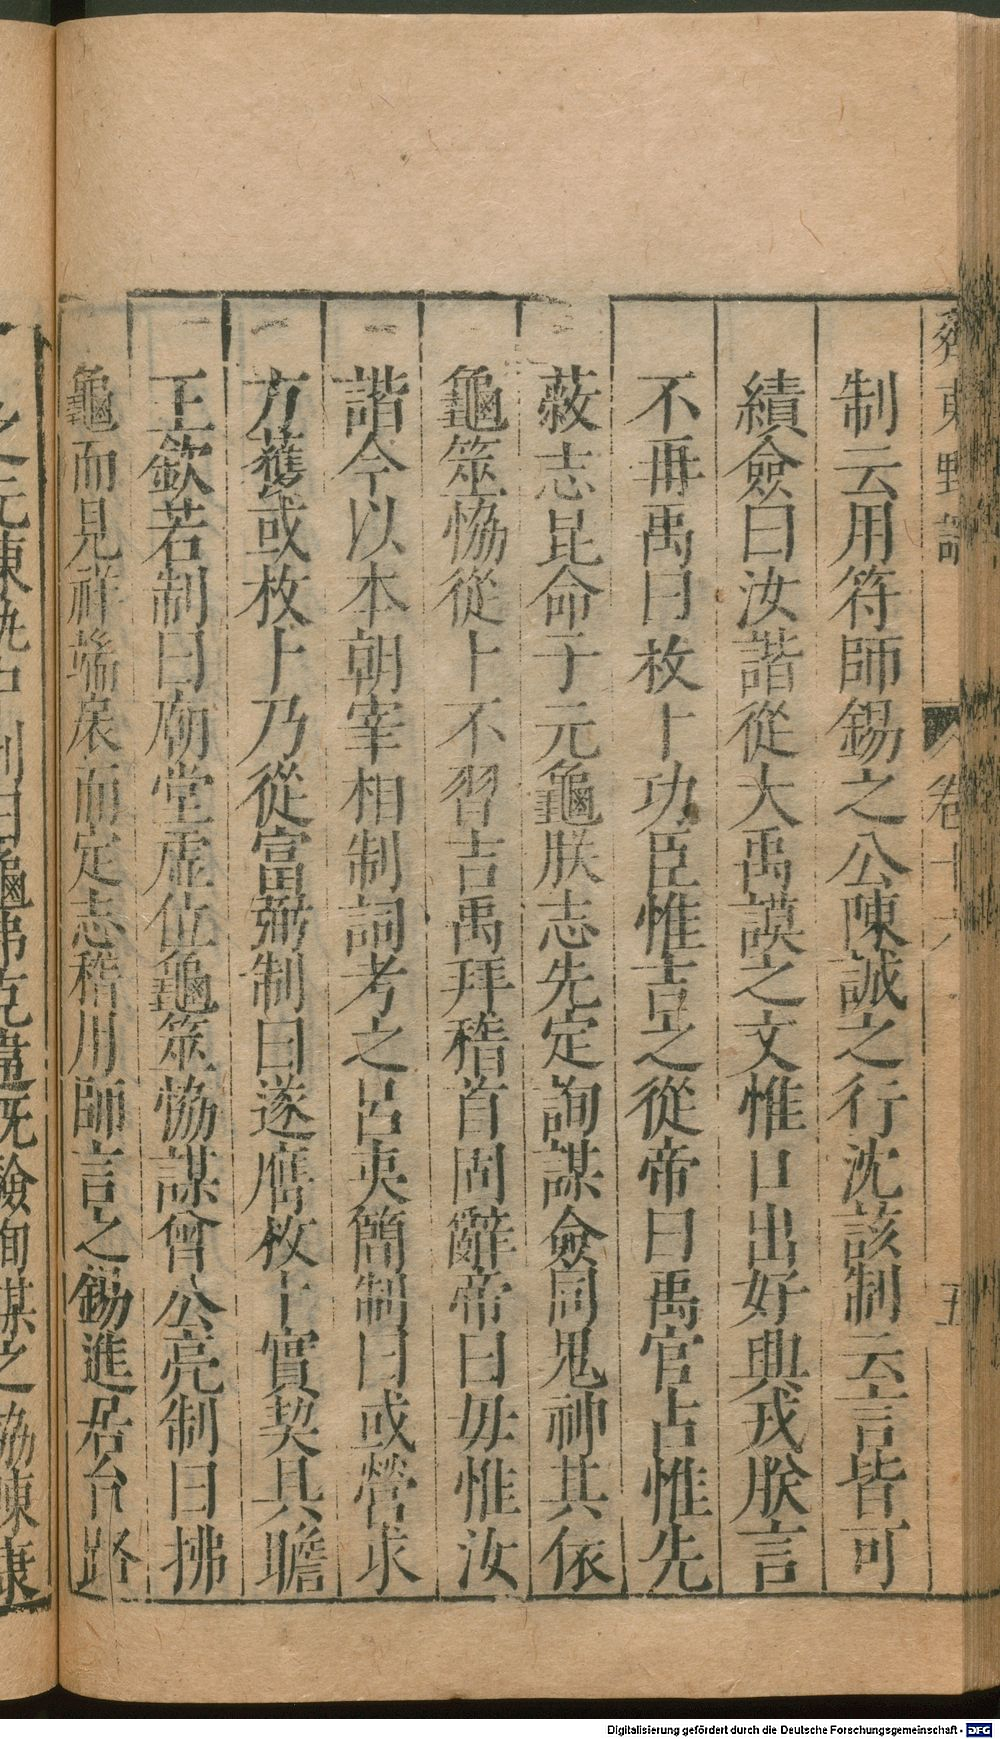 齊東野語 卷十六 五
制云用符師錫之公陳誠之行沈該制云言皆可
績僉曰汝諧從大禹謨之文惟口出好興戎朕言
不再禹曰枚卜功臣惟吉之從帝曰禹官占惟先
蔽志昆命于元龜朕志先定詢謀僉同鬼神其依
龜筮恊從卜不習吉禹拜稽首固辭帝曰毋惟汝
諧今以本朝宰相制詞考之呂夷簡制曰或營求
方獲或枚卜乃從富弼制曰遂膺枚卜實契具瞻
王欽若制曰廟堂虛位龜筮恊謀曾公亮制曰拂
龜而見祥端扆而定志稽用師言之錫進居台路